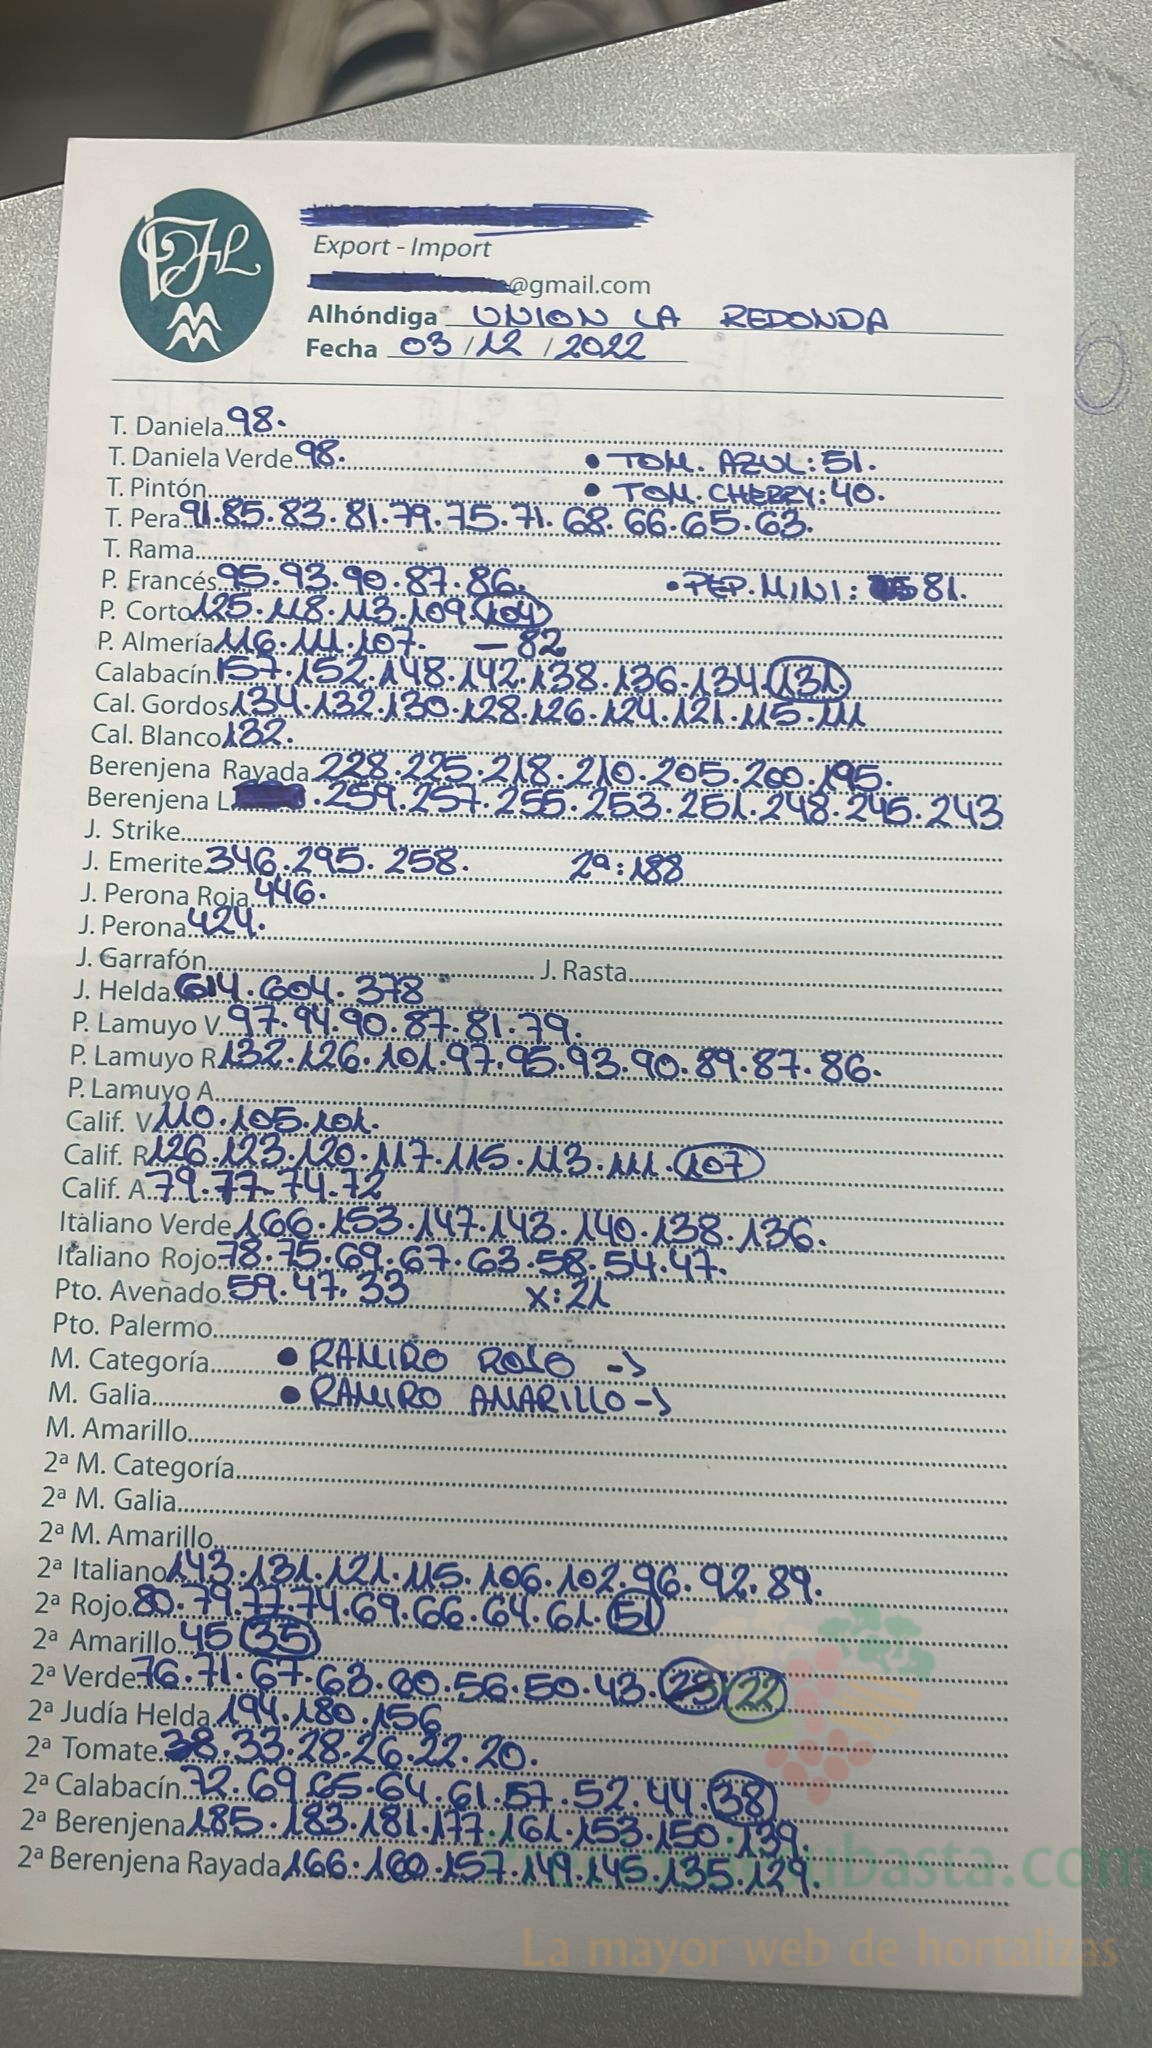 Export - Import
@gmail.com
Alhóndiga UNION LA REDONDA
Fecha 03/12/2022
T. Daniela 98.
T. Daniela Verde 98. • TOM. AZUL: 51.
T. Pintón • TOM. CHERRY: 40.
T. Pera 91.85.83.81.79.75.71.68.66.65.63.
T. Rama
P. Francés 95.93.90.87.86. • PEP. MINI: 81.
P. Corto 125.118.113.109.104
P. Almería 116.111.107. — 82
Calabacín 157.152.148.142.138.136.134.131
Cal. Gordos 134.132.130.128.126.124.121.115.111
Cal. Blanco 132.
Berenjena Rayada 228.225.218.210.205.200.195.
Berenjena L .259.257.255.253.251.248.245.243
J. Strike
J. Emerite 346.295.258. 2ª: 188
J. Perona Roja 446.
J. Perona 424.
J. Garrafón J. Rasta
J. Helda 614.604.378
P. Lamuyo V. 97.94.90.87.81.79.
P. Lamuyo R 132.126.101.97.95.93.90.89.87.86.
P. Lamuyo A
Calif. V 110.105.101.
Calif. R 126.123.120.117.115.113.111.107
Calif. A. 79.77.74.72
Italiano Verde 166.153.147.143.140.138.136.
Italiano Rojo 78.75.69.67.63.58.54.47.
Pto. Avenado 59.47.33 x: 21
Pto. Palermo
M. Categoría • RAMIRO ROJO ->
M. Galia • RAMIRO AMARILLO ->
M. Amarillo
2ª M. Categoría
2ª M. Galia
2ª M. Amarillo
2ª Italiano 143.131.121.115.106.102.96.92.89.
2ª Rojo 80.79.77.74.69.66.64.61.51
2ª Amarillo 45 35
2ª Verde 76.71.67.63.60.56.50.43.23 22
2ª Judía Helda 194.180.156
2ª Tomate 38.33.28.26.22.20.
2ª Calabacín 72.69.65.64.61.57.52.44.38
2ª Berenjena 185.183.181.177.161.153.150.139.
2ª Berenjena Rayada 166.160.157.149.145.135.129.
subasta.com
La mayor web de hortalizas